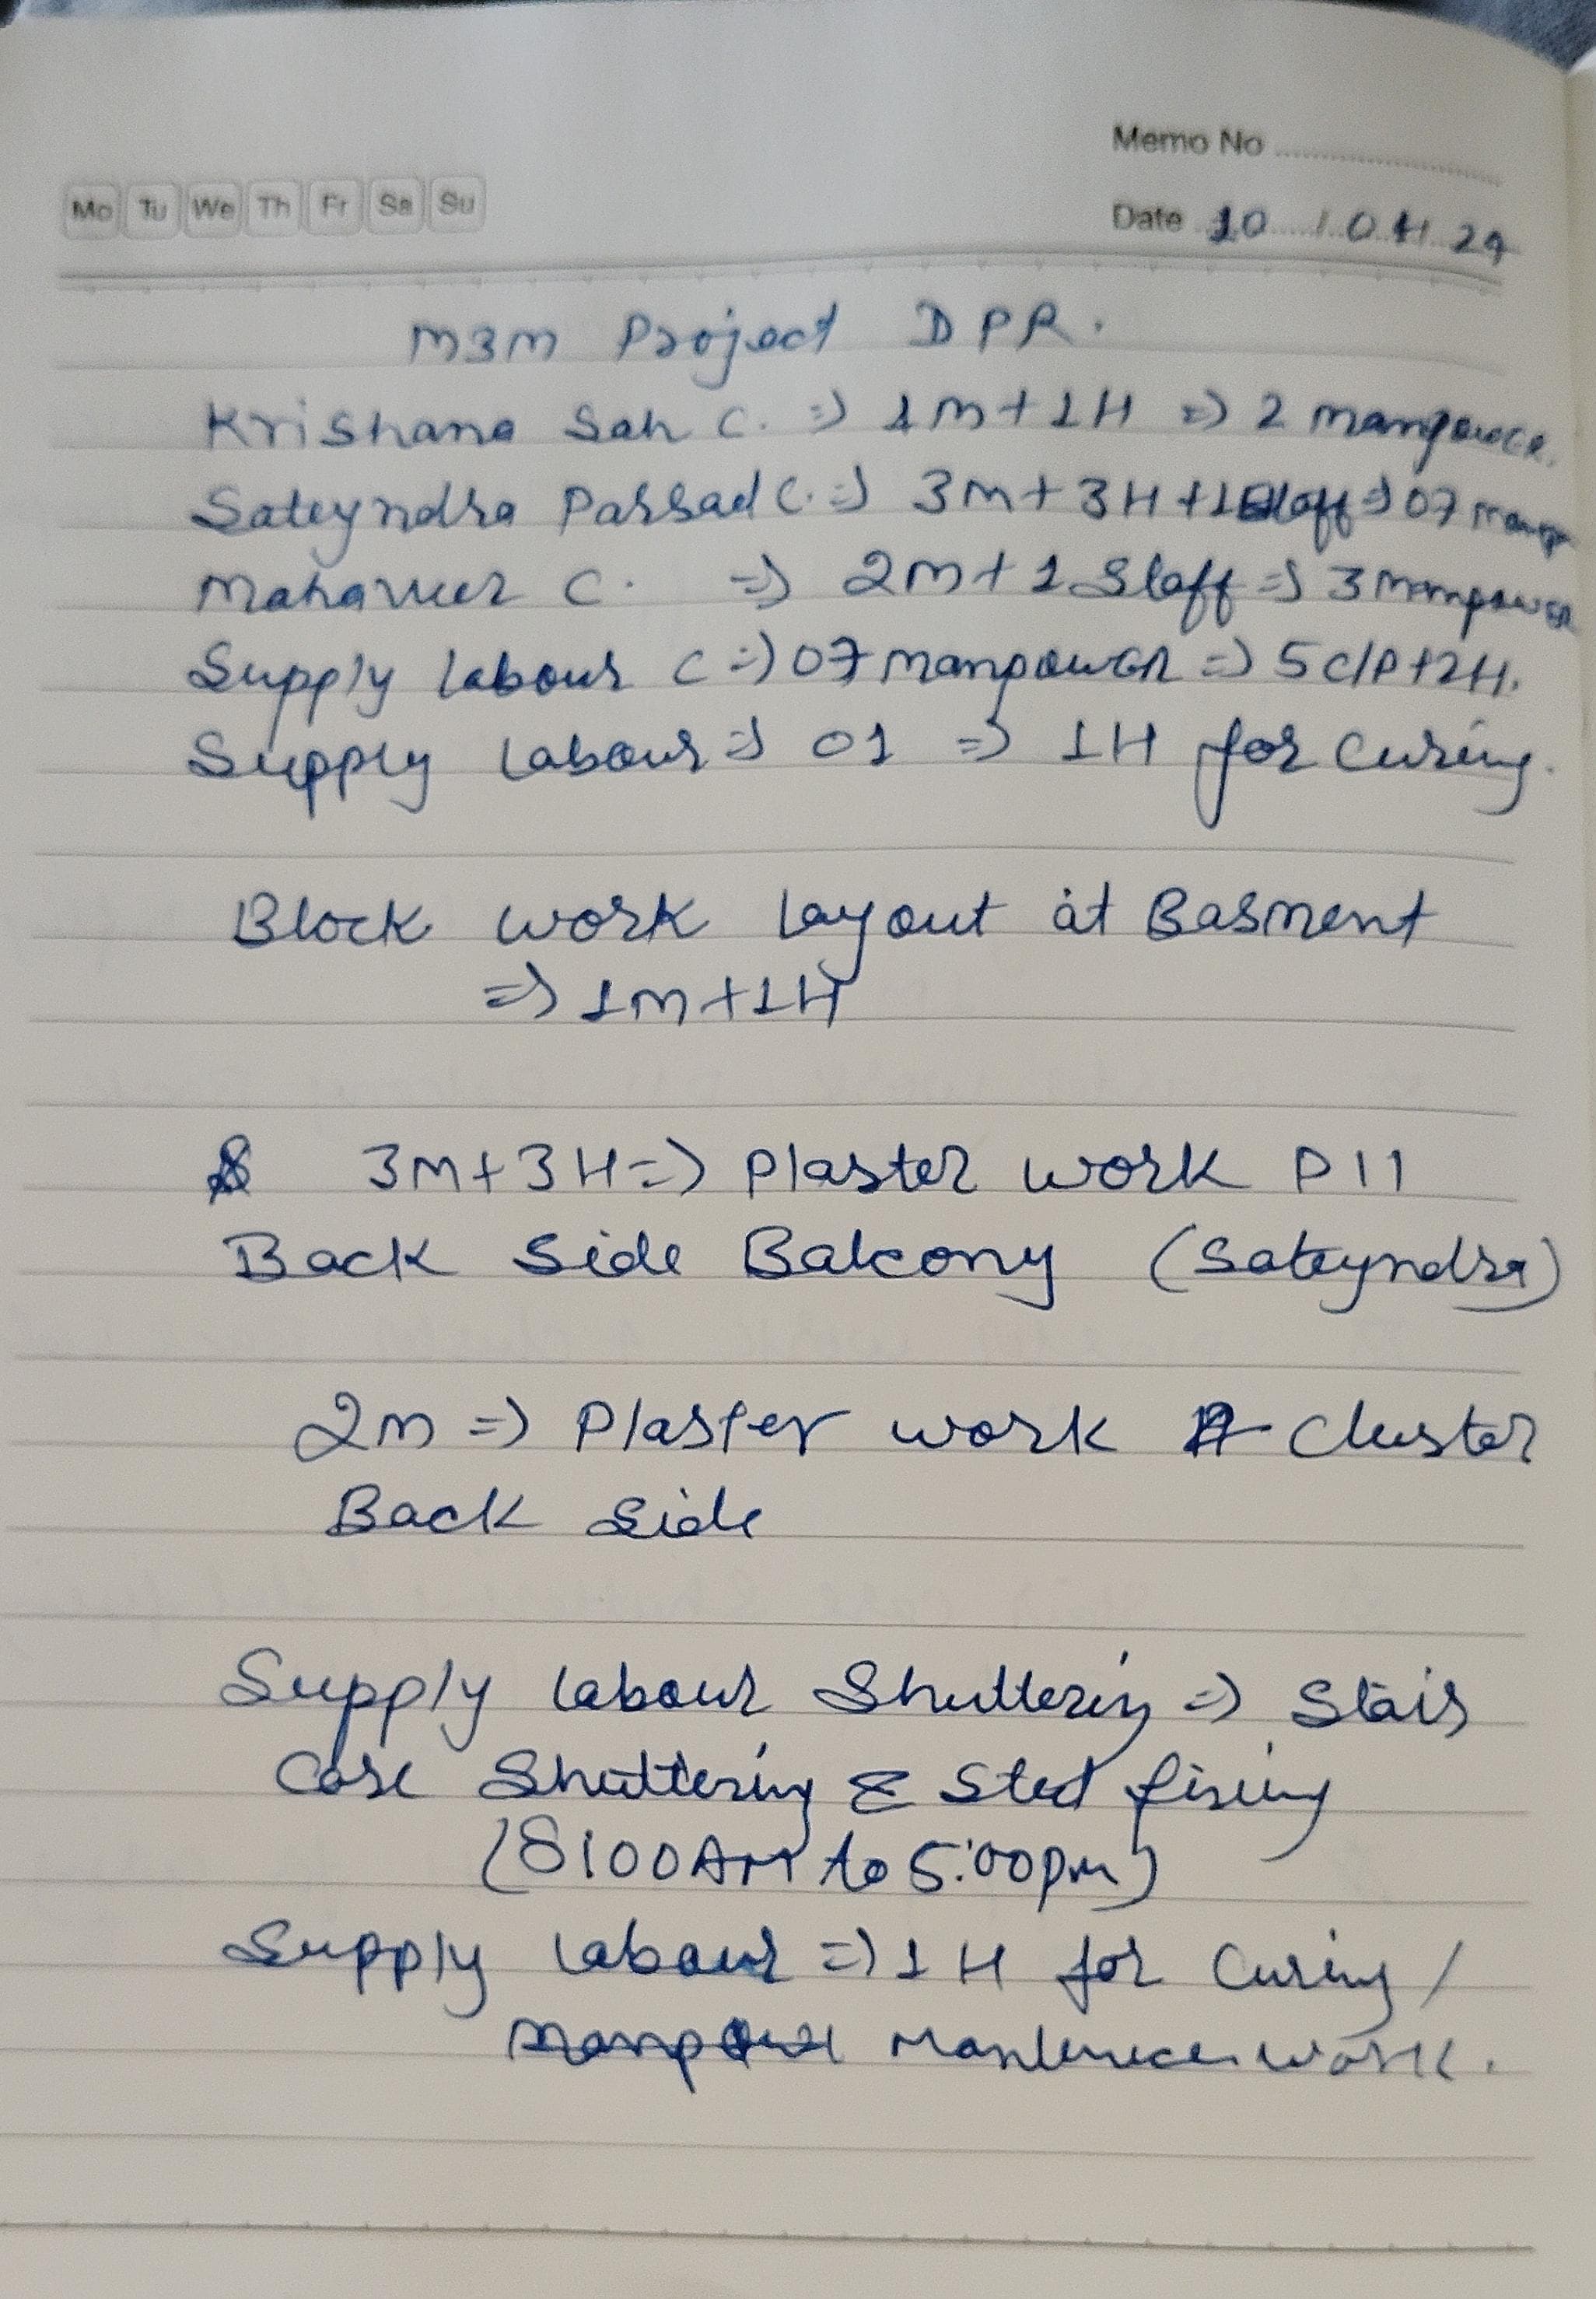 Memo No
Mo Tu We Th Fr Sa Su
Date 10 / 04 24
M3M Project DPR.
Krishana Sah C. => 1M+1H => 2 manpower.
Sateyndra Parsad C. => 3M+3H+1Staff => 07 manp
Mahaveer C. => 2M+1 Staff => 3 Manpower
Supply labour C => 07 manpower => 5 C/P+2H.
Supply labour => 01 => 1H for Curing.
Block work layout at Basment
=> 1M+1H
3M+3H => Plaster work P11
Back Side Balcony (Sateyndra)
2M => Plaster work Cluster
Back Side
Supply labour Shuttering => Stair
Case Shuttering & Steel fixing
(8:00AM to 5:00pm)
Supply labour => 1H for Curing /
Mantenece work.